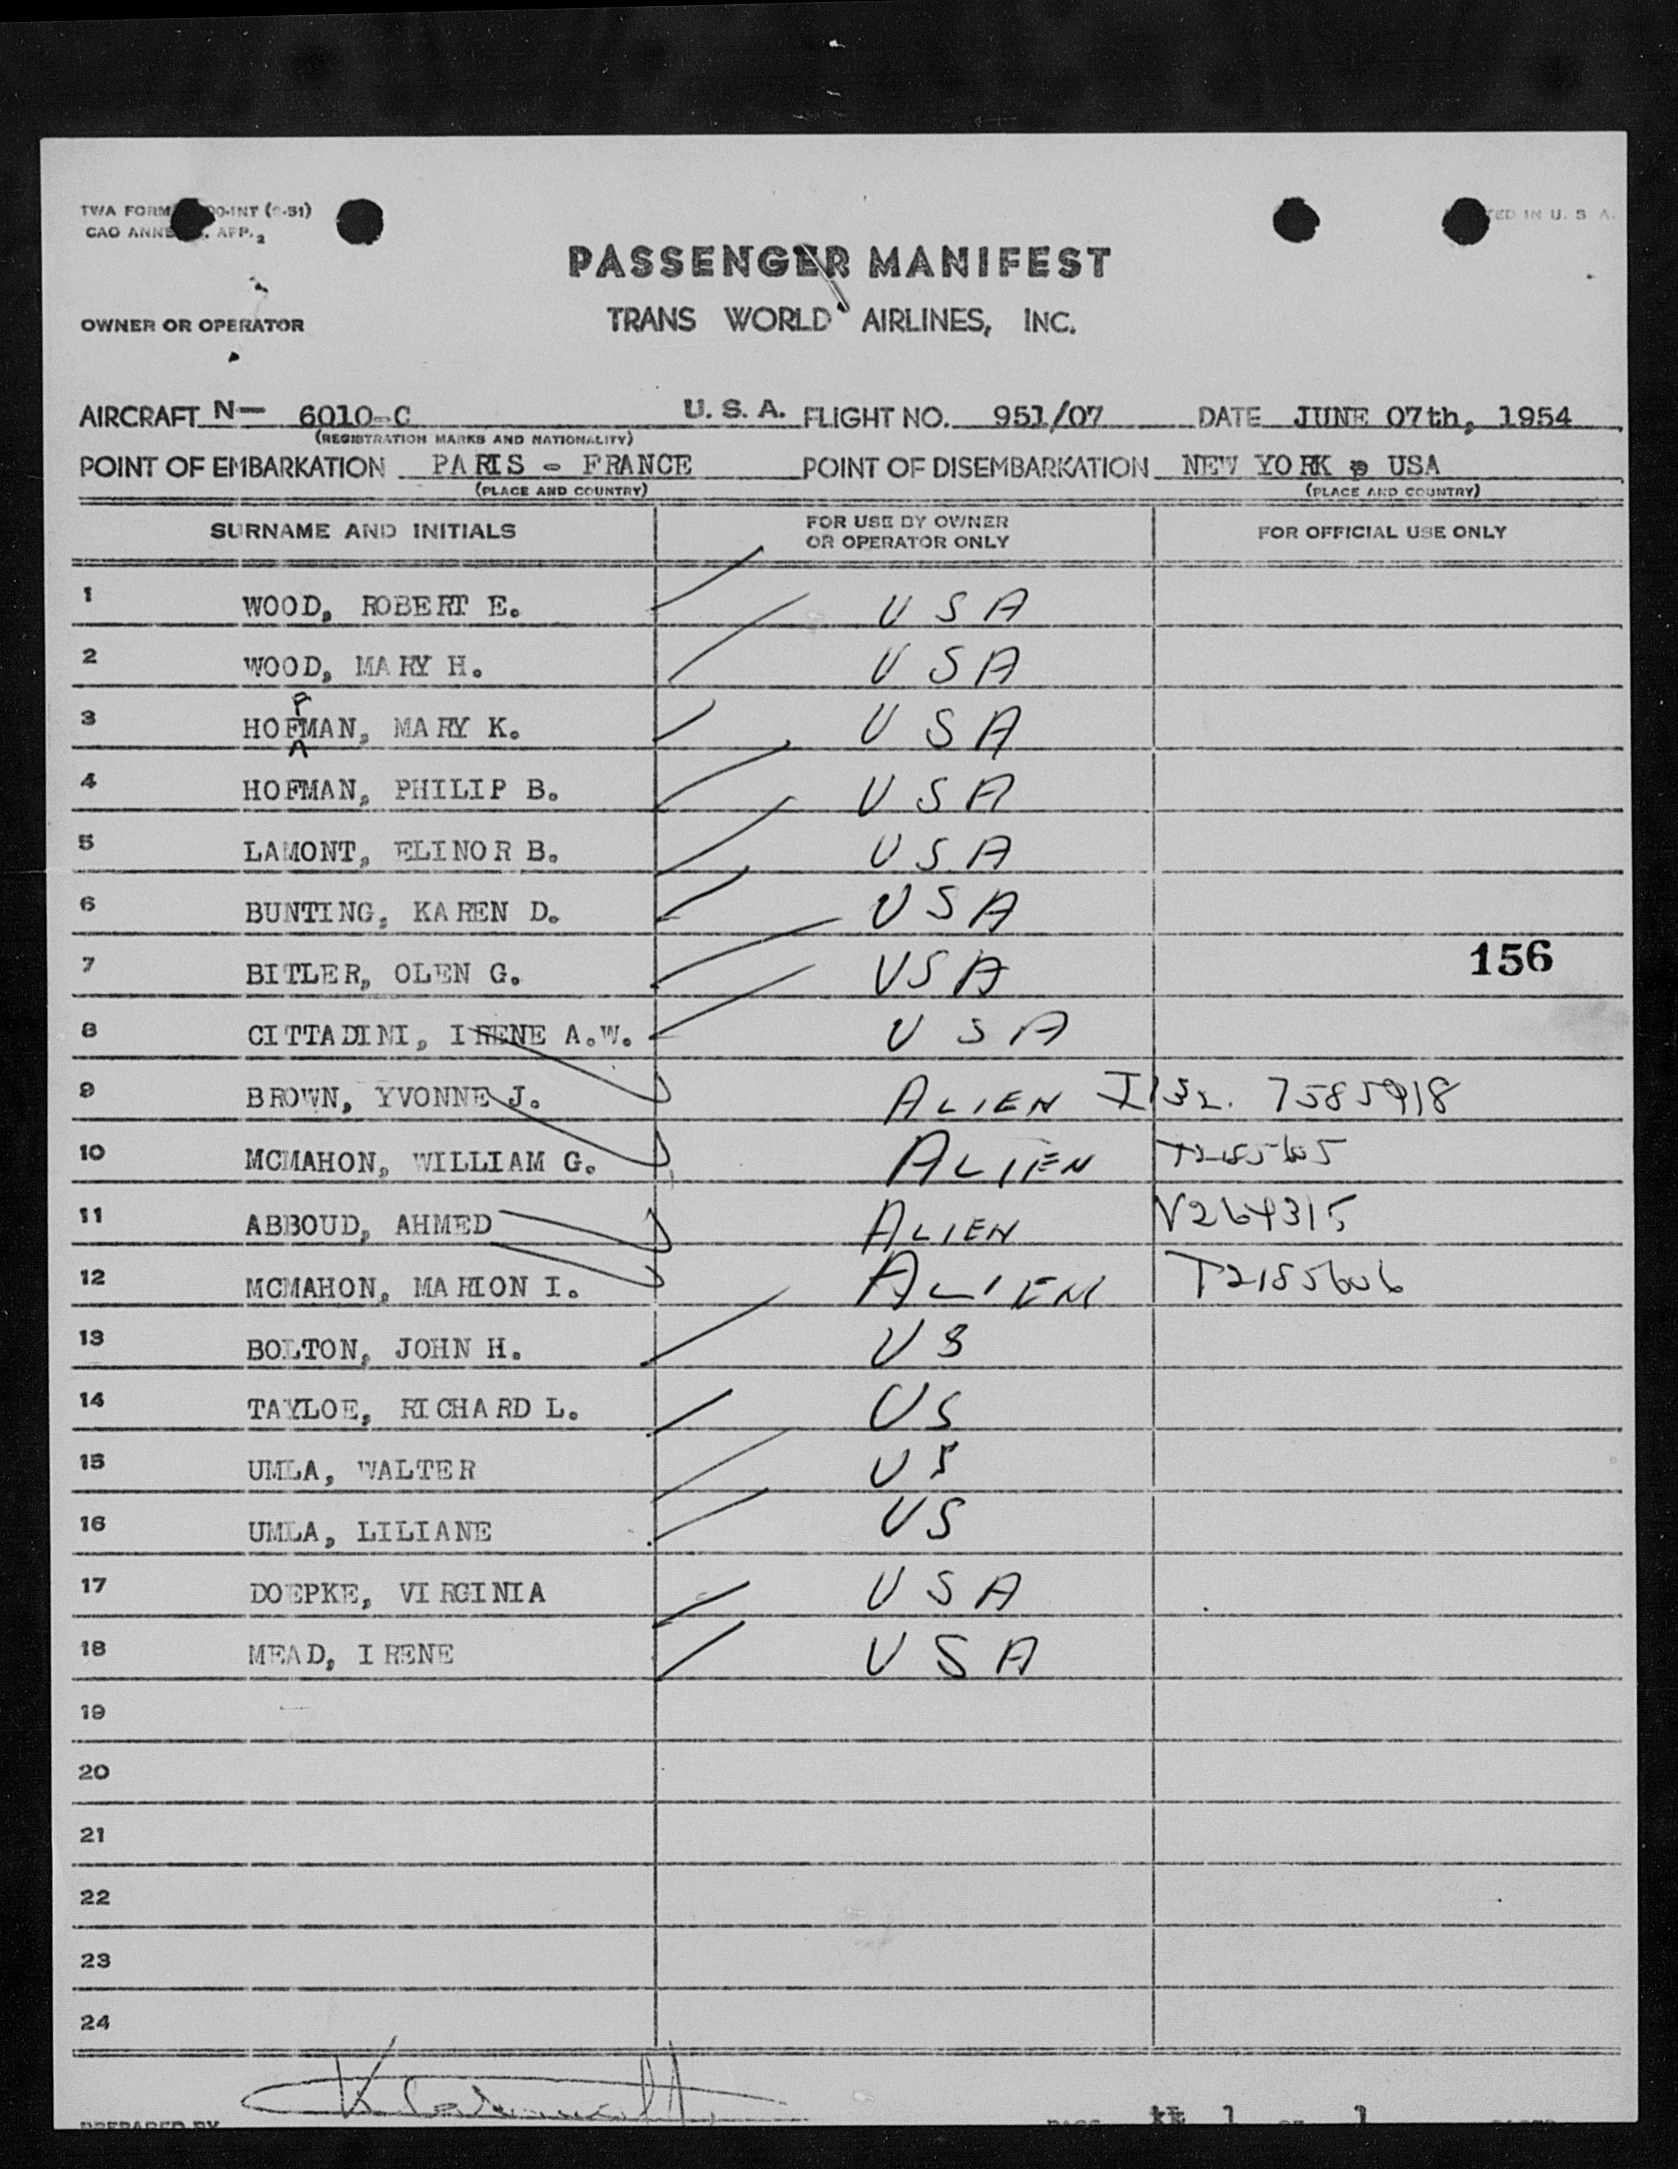 TWA FORM 00-INT ( -51)
CAO ANNE . APP. 2
TED IN U. S. A.
PASSENGER MANIFEST
OWNER OR OPERATOR
TRANS WORLD AIRLINES, INC.
AIRCRAFT N- 6010-C U. S. A. FLIGHT NO. 951/07 DATE JUNE 07th, 1954
(REGISTRATION MARKS AND NATIONALITY)
POINT OF EMBARKATION PARIS - FRANCE POINT OF DISEMBARKATION NEW YORK - USA
(PLACE AND COUNTRY) (PLACE AND COUNTRY)
SURNAME AND INITIALS FOR USE BY OWNER OR OPERATOR ONLY FOR OFFICIAL USE ONLY
1 WOOD, ROBERT E. USA
2 WOOD, MARY H. USA
F
3 HOFMAN, MARY K. USA
4 HOFMAN, PHILIP B. USA
5 LAMONT, ELINOR B. USA
6 BUNTING, KAREN D. USA
7 BITLER, OLEN G. USA 156
8 CITTADINI, IRENE A.W. USA
9 BROWN, YVONNE J. ALIEN I132. 7585918
10 MCMAHON, WILLIAM G. ALIEN T2185605
11 ABBOUD, AHMED ALIEN V264315
12 MCMAHON, MARION I. ALIEN T2185606
13 BOLTON, JOHN H. US
14 TAYLOE, RICHARD L. US
15 UMLA, WALTER US
16 UMLA, LILIANE US
17 DOEPKE, VIRGINIA USA
18 MEAD, IRENE USA
19
20
21
22
23
24
PREPARED BY PAGE 1 OF 1